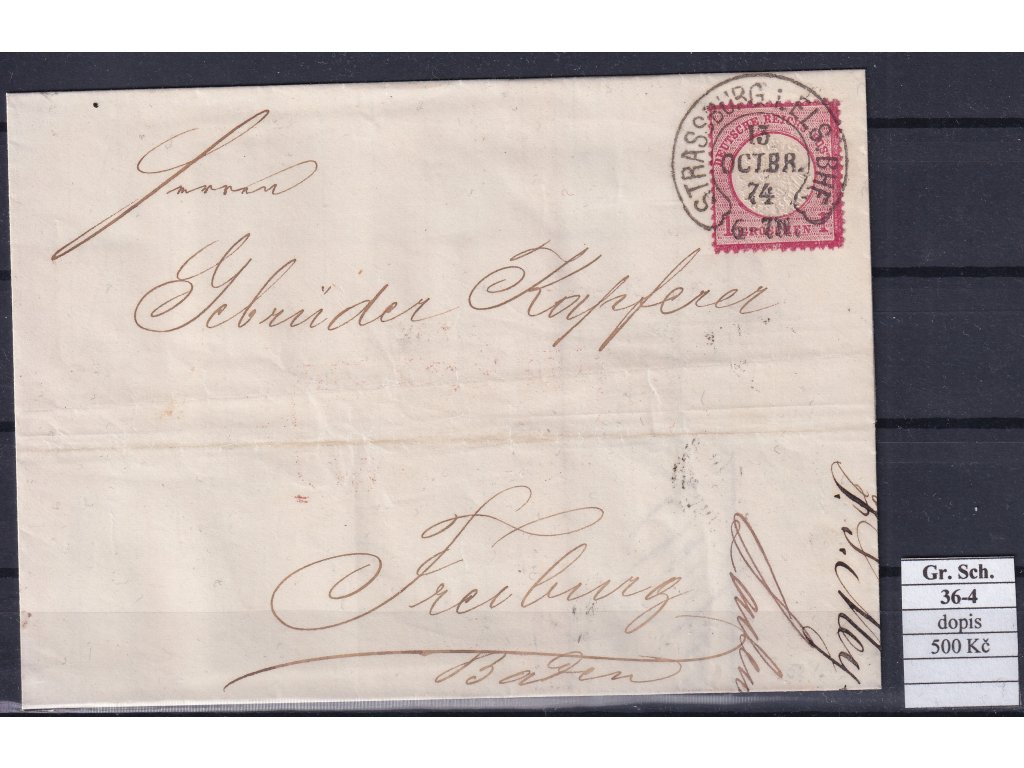 STRASSBURG i. ELS. BHF.
13
OCTBR.
74
6-7N
DEUTSCHE REICHS-POST
1 GROSCHEN 1
Herren
Gebrüder Kapferer
Freiburg
Baden
Gr. Sch.
36-4
dopis
500 Kč